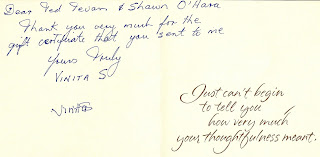 Dear Ted Tevan & Shawn O'Hara
Thank you very much for the
gift certificate that you sent to me
Yours Truly
VINITA S
Just can't begin
to tell you
how very much
your thoughtfulness meant.